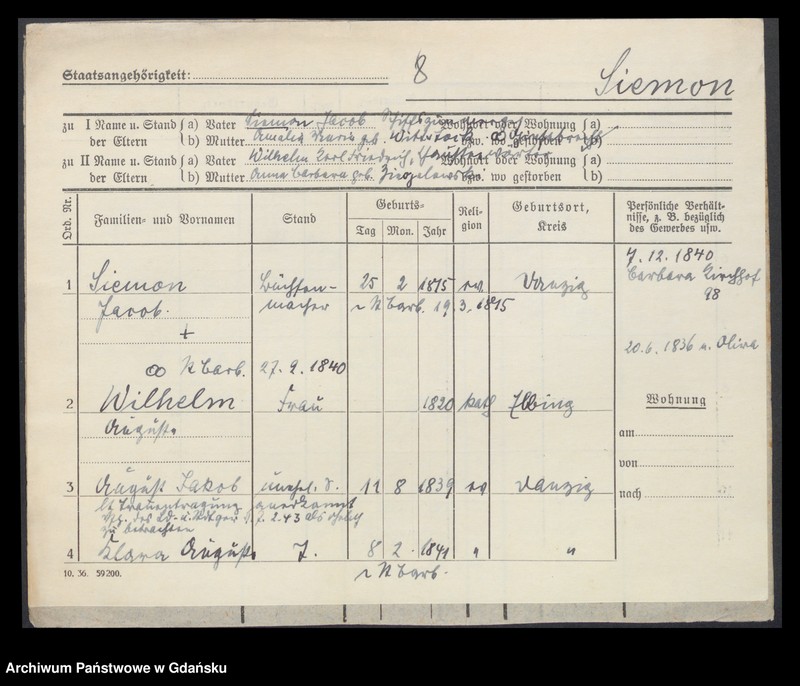 Staatsangehörigkeit:
8
Siemon
zu I Name u. Stand a) Vater Siemon Jacob Wohnort oder Wohnung a)
der Eltern b) Mutter Amalia geb. bzw. wo gestorben b)
zu II Name u. Stand a) Vater Wilhelm Karl Friedrich, Wohnort oder Wohnung a)
der Eltern b) Mutter Anna Barbara geb. bzw. wo gestorben b)
Ord. Nr. Familien- und Vornamen Stand Geburts- Tag Mon. Jahr Religion Geburtsort, Kreis Persönliche Verhältnisse, z. B. bezüglich des Gewerbes usw.
7. 12. 1840
1 Siemon Büchsen- 25 2 1815 ev Danzig Barbara Kirchhof
Jacob. macher ~ St Barb. 19. 3. 1815
98
+
20.6. 1836 n. Oliva
∞ St Barb. 27. 9. 1840
2 Wilhelm Frau 1820 kath Elbing Wohnung
August.
am
von
3 August Jakob unehel. S. 11 8 1839 ev Danzig
nach
lt. Traueintragung anerkannt
zu betrachten
4 Klara August. T. 8 2. 1841 " "
10. 36. 59200.
~ St Barb.
Archiwum Państwowe w Gdańsku